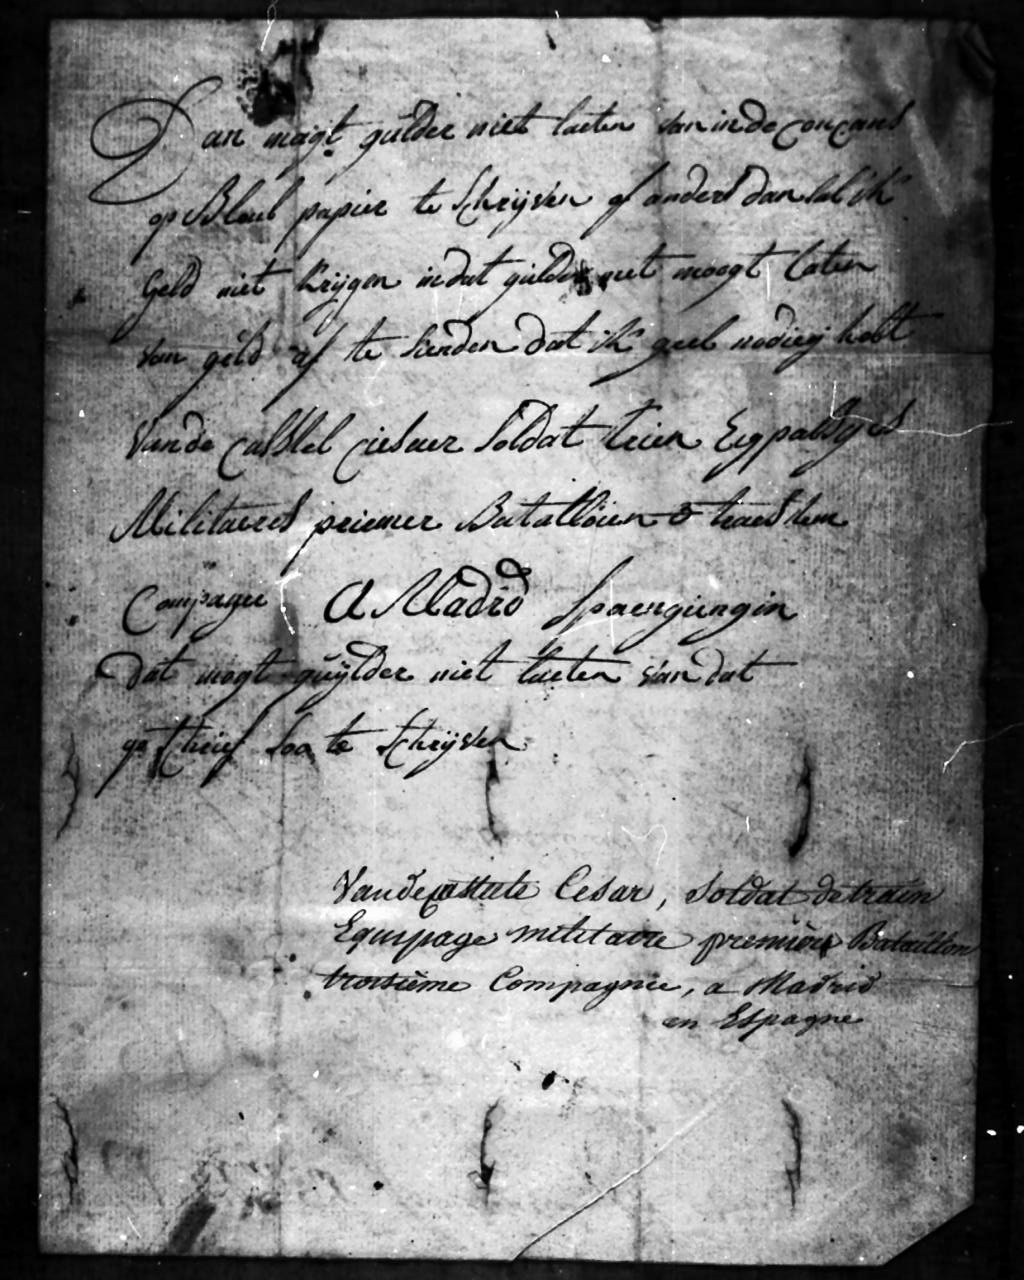 Dan magt gulder niet laeten van in de conçans
op Blaul papier te schrijven of anders dan sal ik
geld niet krijgen in dat gulder niet moogt laten
van geld af te senden dat ik geel nodieg hebt
Vande casstel ciesaer soldat trien Eqpassges
Militaeres priemer Batalloien 3 traesiem
Compagne A Madrid spaengiengin
dat mogt guylder niet laeten van dat
op schrief soo te schrijven
Vandecasteele Cesar, soldat de train
Equipage militaire première Bataillon
troisième Compagnie, a Madrid
en Espagne